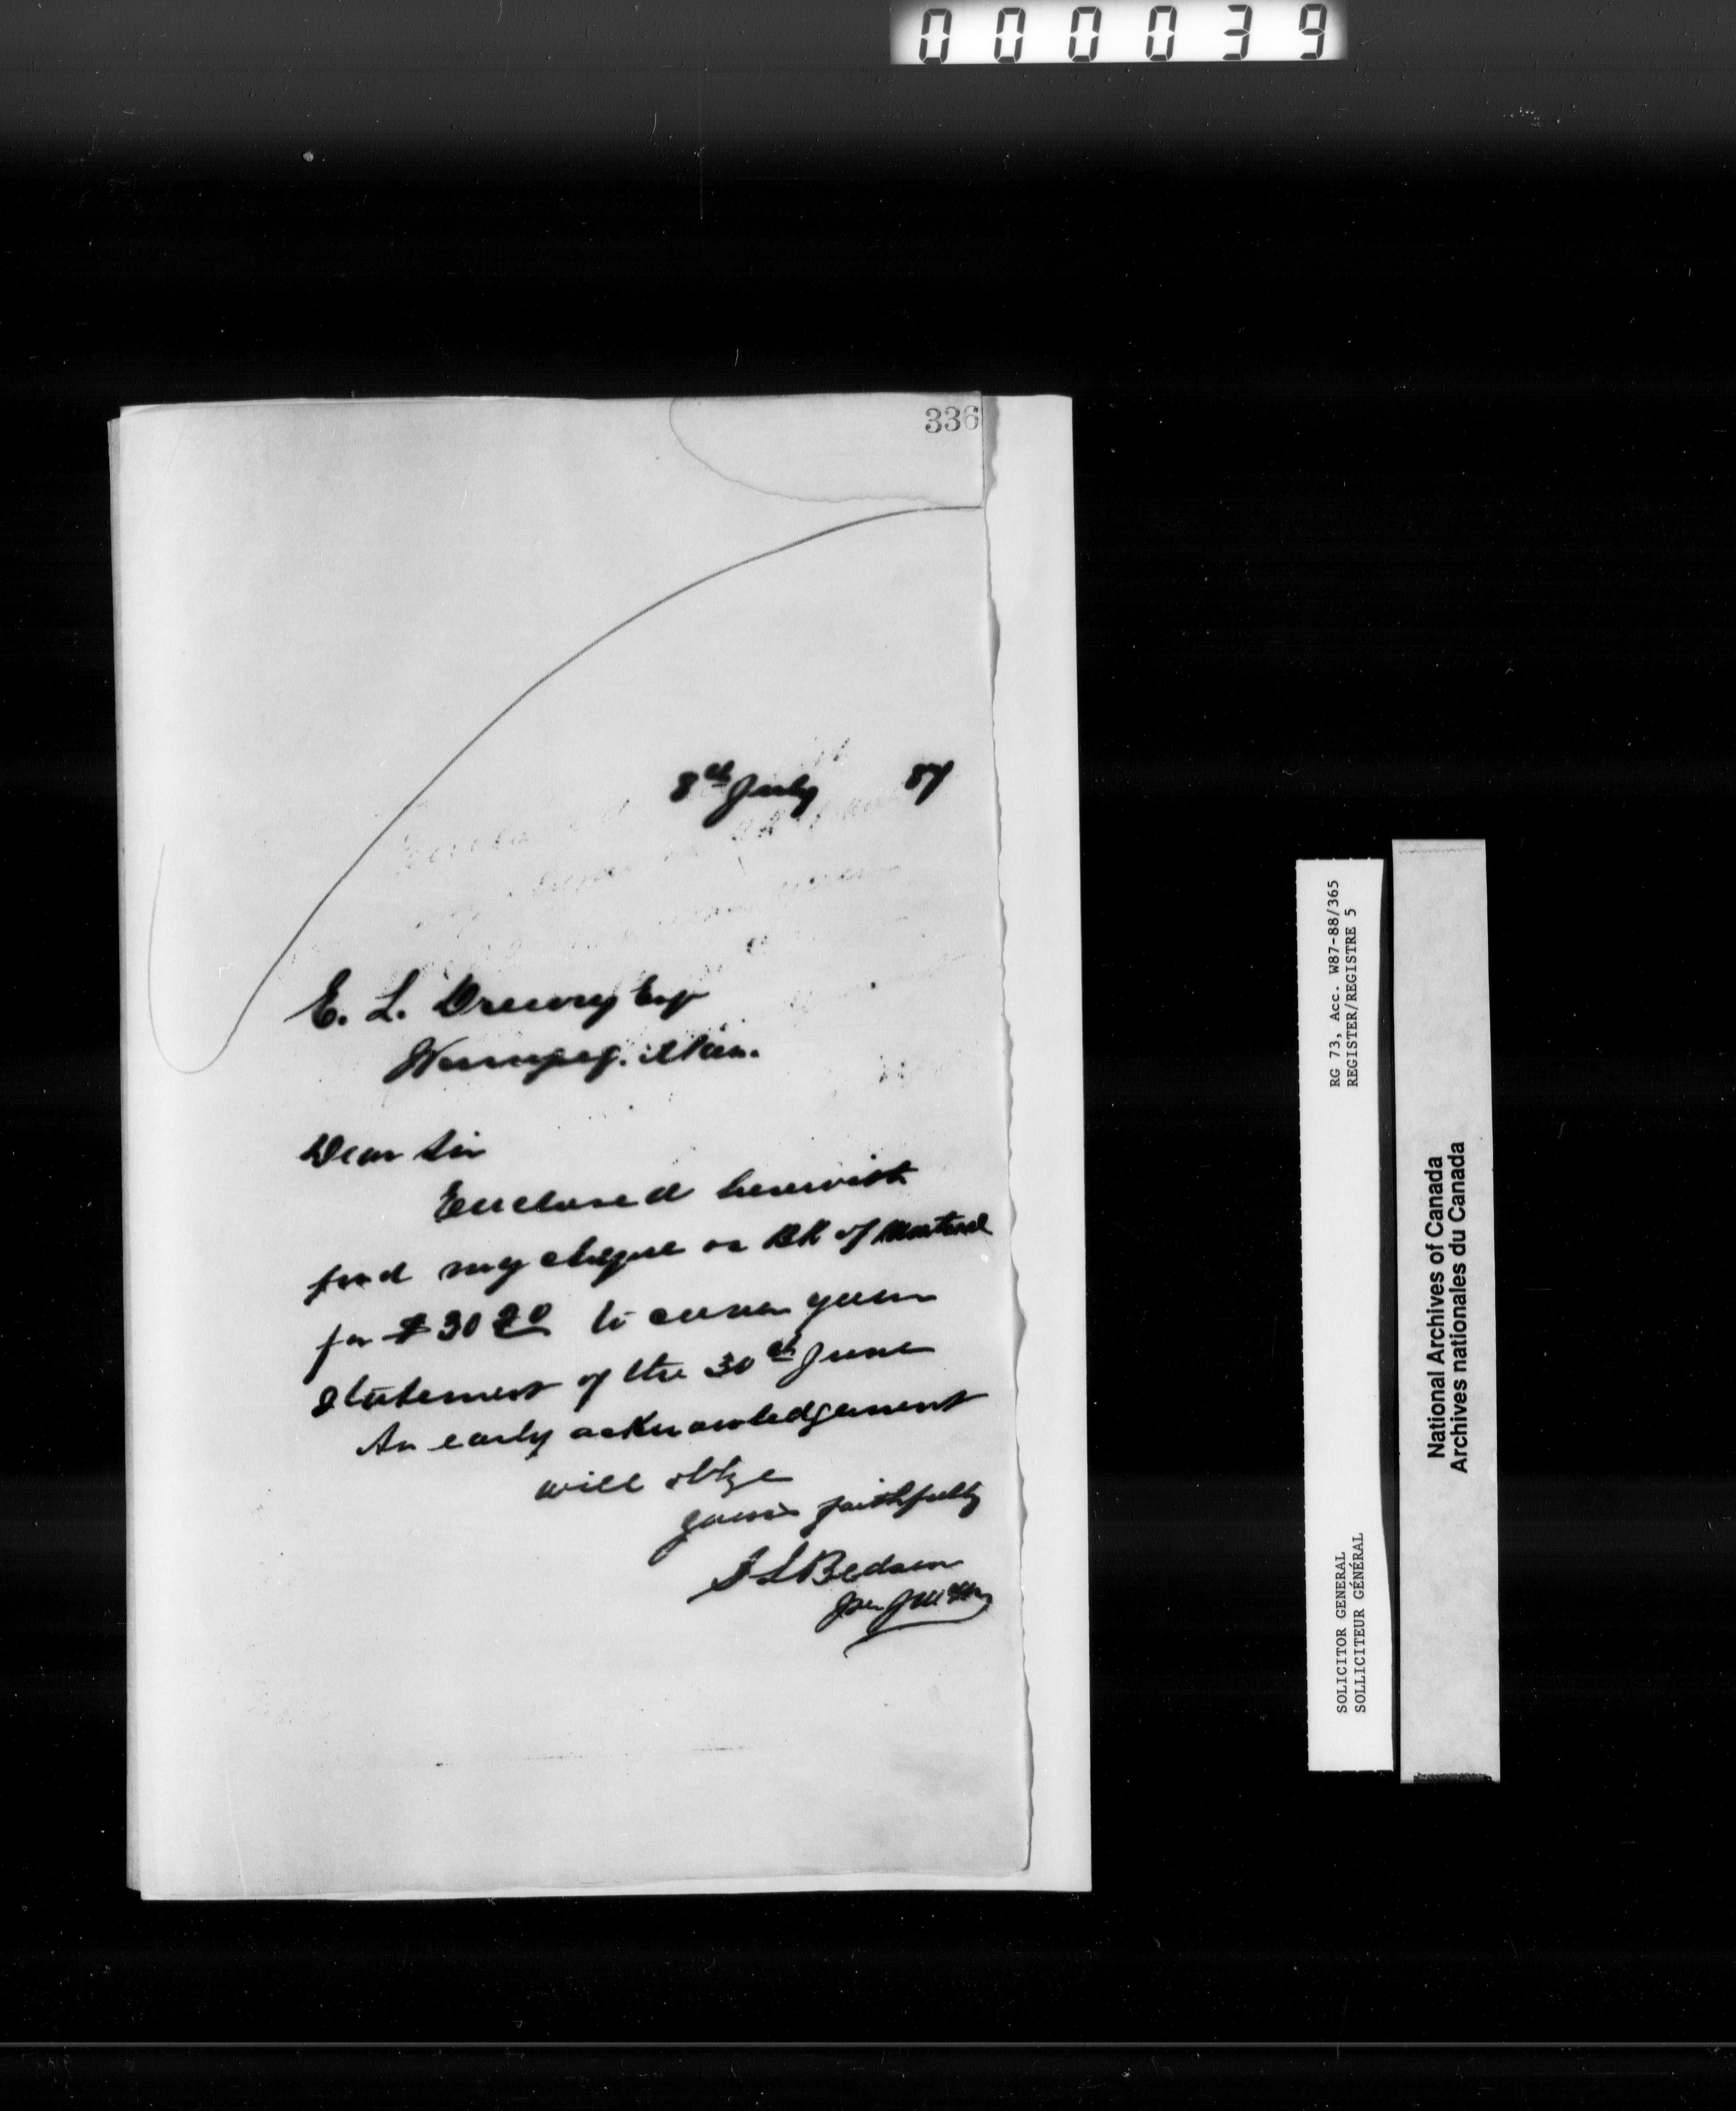 000039
336
8th July 87
E. L. Drewry Esq
Winnipeg. Man.
Dear Sir
Enclosed herewith
find my cheque on BK of Montreal
for $30 20 to cover your
statement of the 30th June
An early acknowledgement
will oblige
yours faithfully
S L Bedson
RG 73, Acc. W87-88/365
REGISTER/REGISTRE 5
SOLICITOR GENERAL
SOLLICITEUR GÉNÉRAL
National Archives of Canada
Archives nationales du Canada